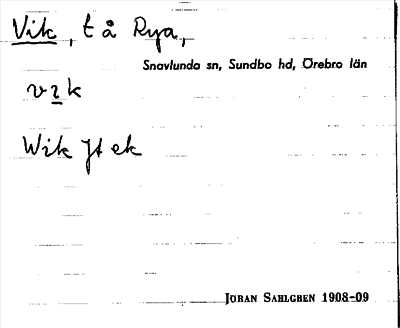 Vik, t å Rya,
Snavlunda sn, Sundbo hd, Örebro län
Wik Jt ek
JÖRAN SAHLGREN 1908-09